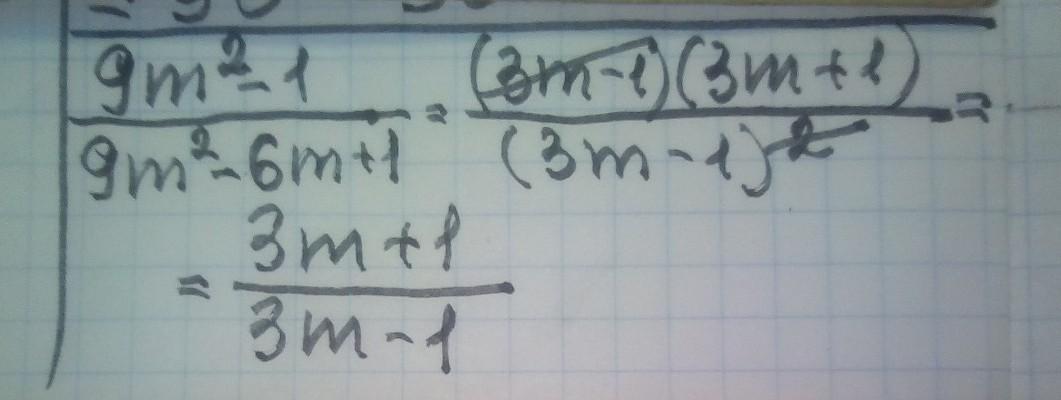 9m²-1 / 9m²-6m+1 = (3m-1)(3m+1) / (3m-1)² =
= 3m+1 / 3m-1